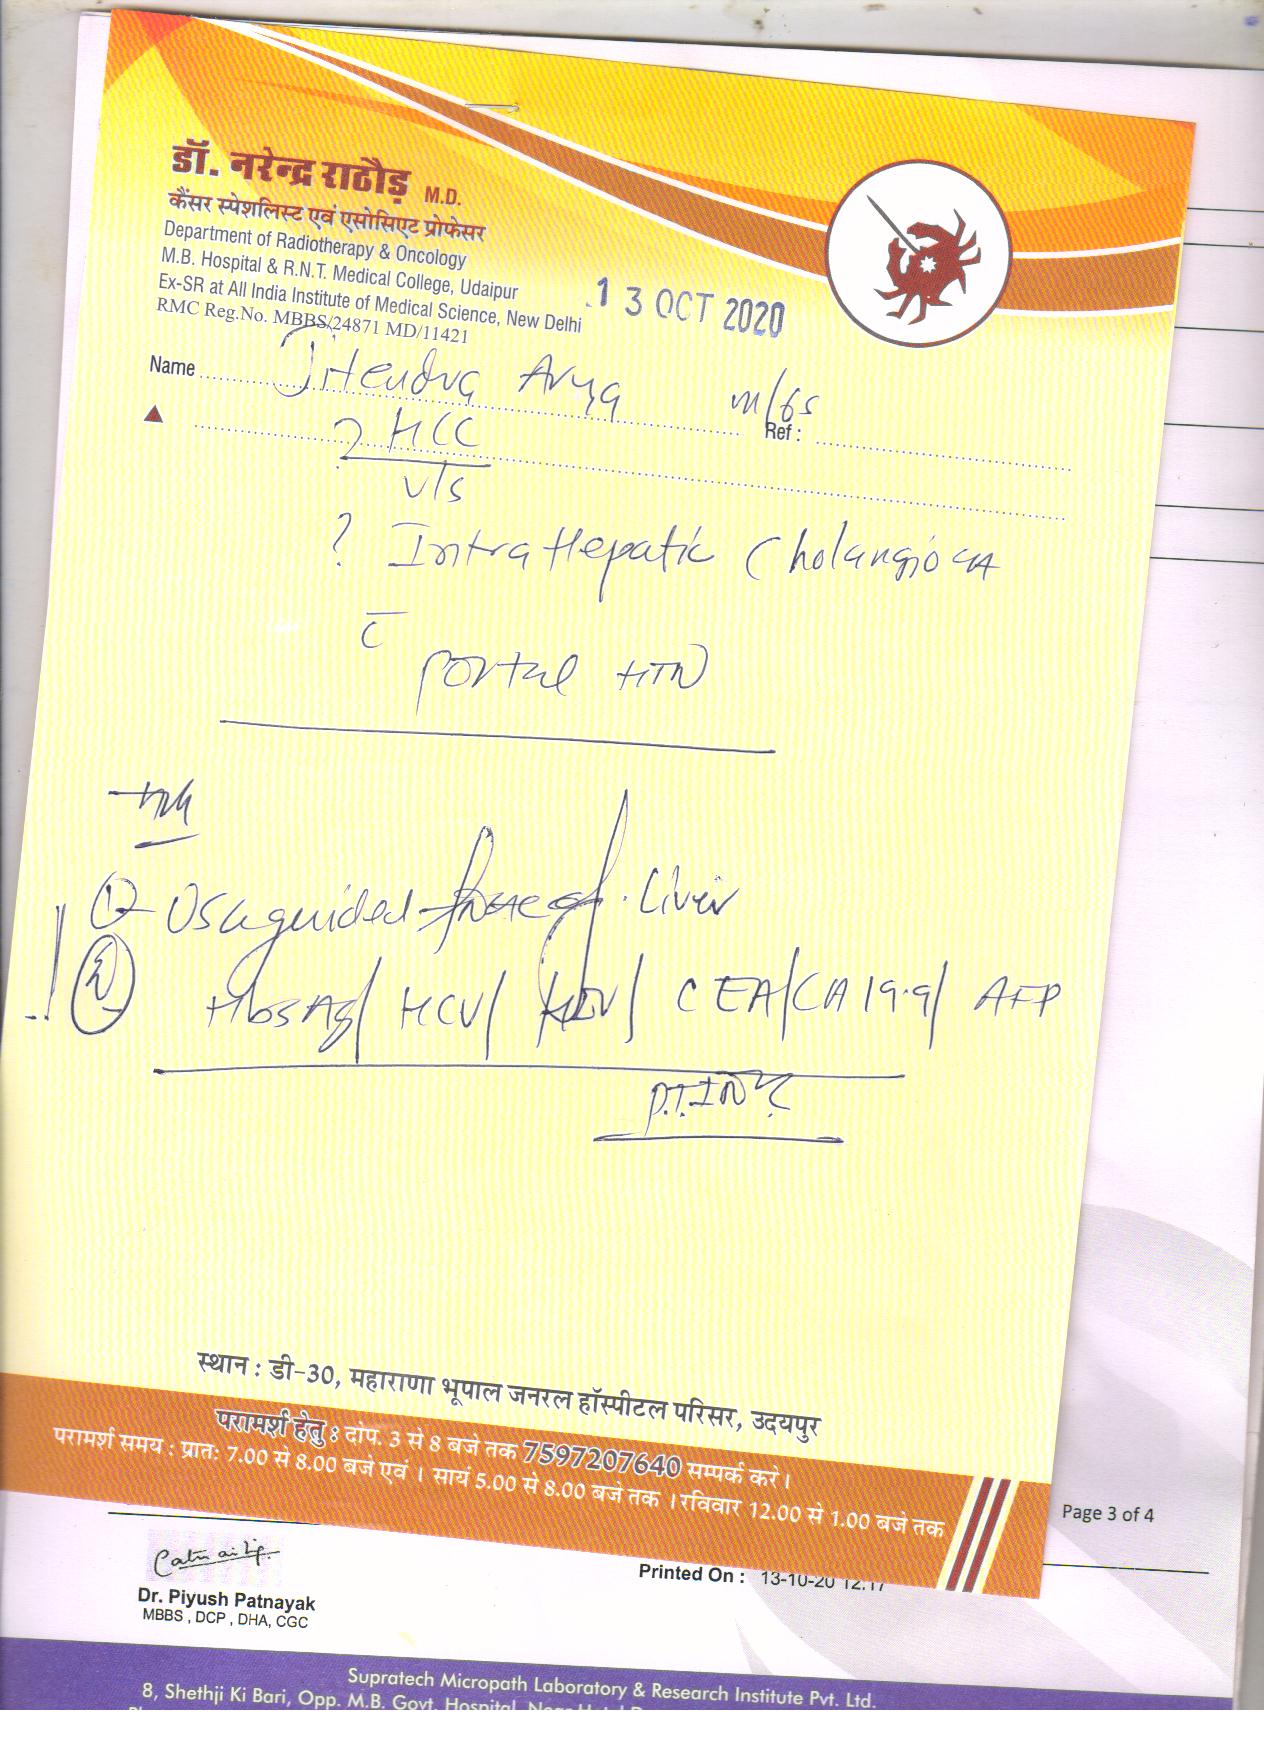 डॉ. नरेन्द्र राठौड़ M.D.
कैंसर स्पेशलिस्ट एवं एसोसिएट प्रोफेसर
Department of Radiotherapy & Oncology
M.B. Hospital & R.N.T. Medical College, Udaipur
Ex-SR at All India Institute of Medical Science, New Delhi
RMC Reg.No. MBBS/24871 MD/11421
13 OCT 2020
Name Jitendra Arya M/65
Ref :
? HCC
v/s
? Intrahepatic Cholangio CA
c̄
Portal HTN
1 USG guided FNAC of Liver
2
HbsAg/ HCV/ HIV/ CEA/CA 19.9/ AFP
P.T.INR
स्थान : डी-30, महाराणा भूपाल जनरल हॉस्पीटल परिसर, उदयपुर
परामर्श हेतु : दोप. 3 से 8 बजे तक 7597207640 सम्पर्क करे।
परामर्श समय : प्रातः 7.00 से 8.00 बजे एवं । सायं 5.00 से 8.00 बजे तक । रविवार 12.00 से 1.00 बजे तक
Page 3 of 4
Printed On : 13-10-20 12:17
Dr. Piyush Patnayak
MBBS , DCP , DHA, CGC
Supratech Micropath Laboratory & Research Institute Pvt. Ltd.
8, Shethji Ki Bari, Opp. M.B. Govt. Hospital, Near Hotel